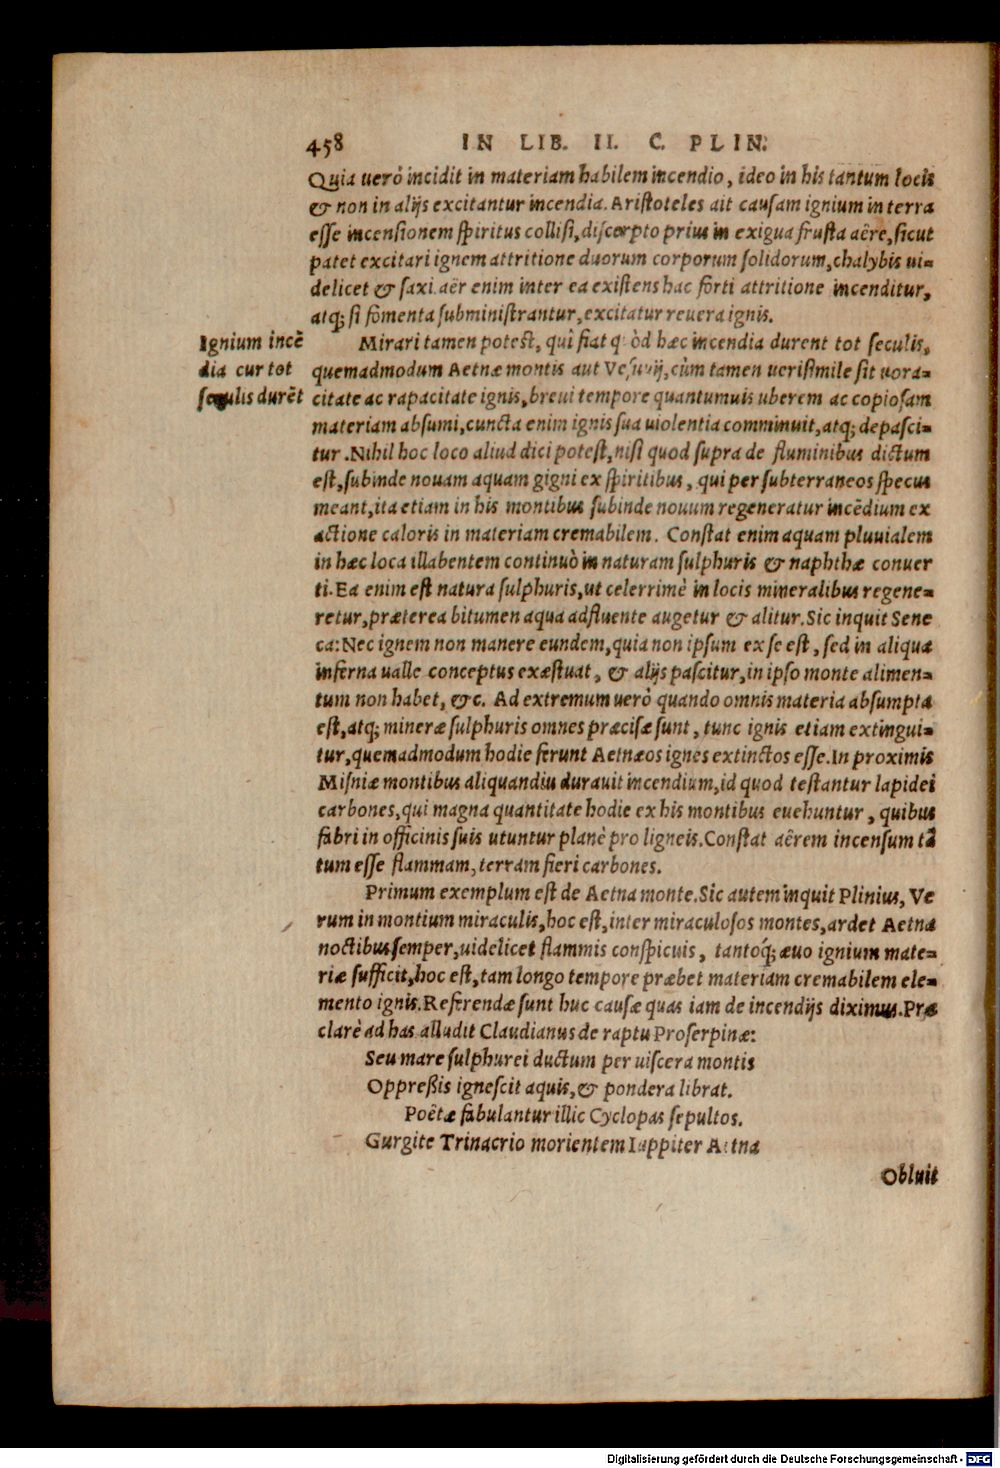 458 IN LIB. II. C. PLIN.
Quia uerò incidit in materiam habilem incendio, ideo in his tantum locis
& non in alijs excitantur incendia. Aristoteles ait causam ignium in terra
esse incensionem spiritus collisi, discerpto prius in exigua frusta aëre, sicut
patet excitari ignem attritione duorum corporum solidorum, chalybis ui=
delicet & saxi. aër enim inter ea existens hac forti attritione incenditur,
atq; si fomenta subministrantur, excitatur reuera ignis.
Ignium incē
dia cur tot
seculis durēt
Mirari tamen potest, qui fiat quòd hæc incendia durent tot seculis,
quemadmodum Aetnæ montis aut Vesuuij, cùm tamen uerisimile sit uora=
citate ac rapacitate ignis, breui tempore quantumuis uberem ac copiosam
materiam absumi, cuncta enim ignis sua uiolentia comminuit, atq; depasci=
tur. Nihil hoc loco aliud dici potest, nisi quod supra de fluminibus dictum
est, subinde nouam aquam gigni ex spiritibus, qui per subterraneos specus
meant, ita etiam in his montibus subinde nouum regeneratur incēdium ex
actione caloris in materiam cremabilem. Constat enim aquam pluuialem
in hæc loca illabentem continuò in naturam sulphuris & naphthæ conuer
ti. Ea enim est natura sulphuris, ut celerrimè in locis mineralibus regene=
retur, præterea bitumen aqua adfluente augetur & alitur. Sic inquit Sene
ca: Nec ignem non manere eundem, quia non ipsum ex se est, sed in aliqua
inferna ualle conceptus exæstuat, & alijs pascitur, in ipso monte alimen=
tum non habet, &c. Ad extremum uerò quando omnis materia absumpta
est, atq; mineræ sulphuris omnes præcisæ sunt, tunc ignis etiam extingui=
tur, quemadmodum hodie ferunt Aetnæos ignes extinctos esse. In proximis
Misniæ montibus aliquandiu durauit incendium, id quod testantur lapidei
carbones, qui magna quantitate hodie ex his montibus euehuntur, quibus
fabri in officinis suis utuntur planè pro ligneis. Constat aërem incensum tā
tum esse flammam, terram fieri carbones.
Primum exemplum est de Aetna monte. Sic autem inquit Plinius, Ve
rum in montium miraculis, hoc est, inter miraculosos montes, ardet Aetna
noctibus semper, uidelicet flammis conspicuis, tantoq́; æuo ignium mate=
riæ sufficit, hoc est, tam longo tempore præbet materiam cremabilem ele=
mento ignis. Referendæ sunt huc causæ quas iam de incendijs diximus. Præ
clarè ad has alludit Claudianus de raptu Proserpinæ:
Seu mare sulphurei ductum per uiscera montis
Oppreßis ignescit aquis, & pondera librat.
Poëtæ fabulantur illic Cyclopas sepultos.
Gurgite Trinacrio morientem Iuppiter Aetna
Obluit
Digitalisierung gefördert durch die Deutsche Forschungsgemeinschaft - DFG